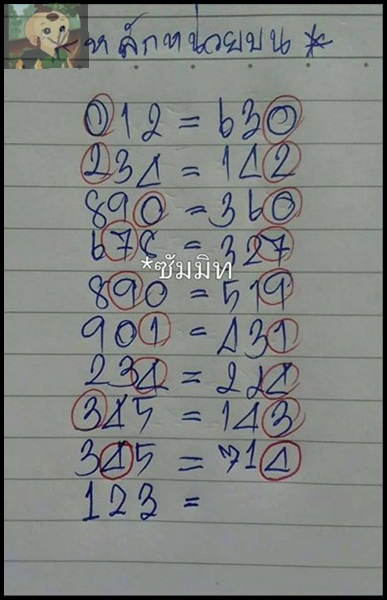 หลักหน่วยบน
012 = 630
234 = 142
890 = 360
678 = 327
*ซัมมิท
890 = 519
901 = 431
234 = 224
345 = 143
345 = 714
123 =